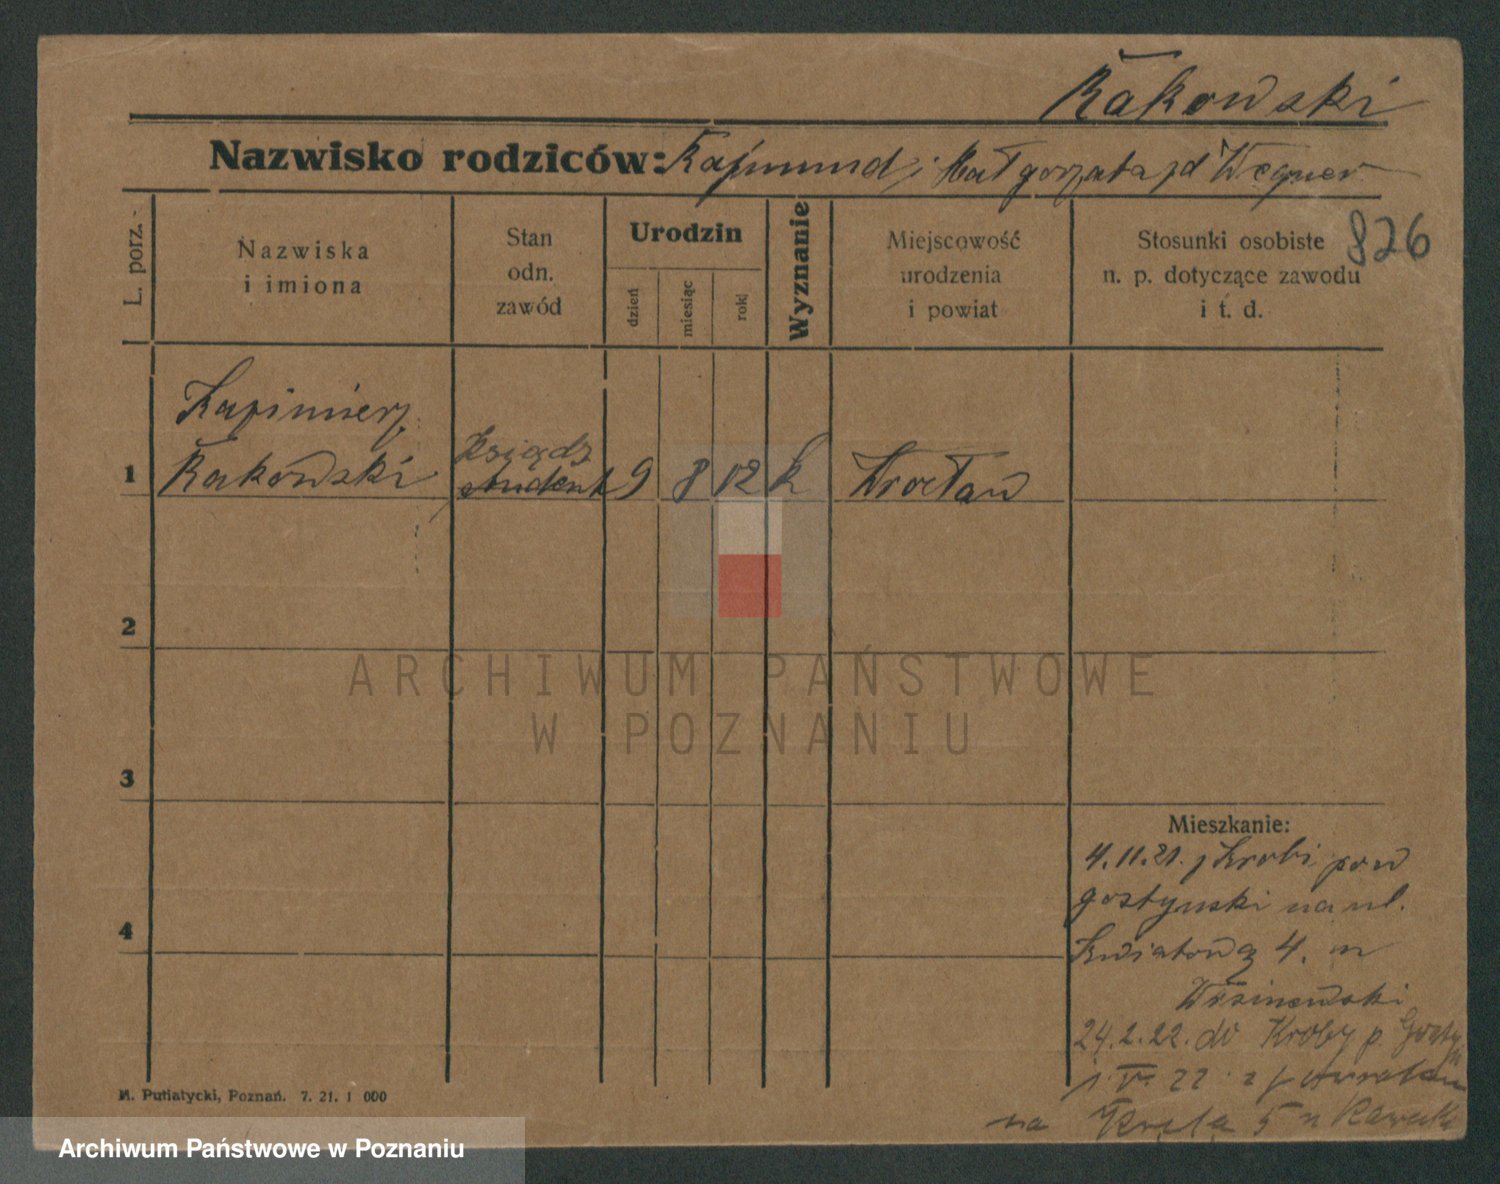 Rakowski
Nazwisko rodziców: Rajmund i Małgorzata zd Wegner
826
L. porz.
Nazwiska
i imiona
Stan
odn.
zawód
Urodzin
dzień
miesiąc
rok
Wyznanie
Miejscowość
urodzenia
i powiat
Stosunki osobiste
n. p. dotyczące zawodu
i t. d.
Kazimierz
Rakowski
Ksiądz
student
1
9
8
02
k
Wrocław
2
3
4
Mieszkanie:
4.11.21. z Krobi pow
gostynski na ul.
Kwiatową 4. m
24.2.22. do Kroby p.
22
na 5
M. Putiatycki, Poznań. 7. 21. 1 000
ARCHIWUM PAŃSTWOWE
W POZNANIU
Archiwum Państwowe w Poznaniu